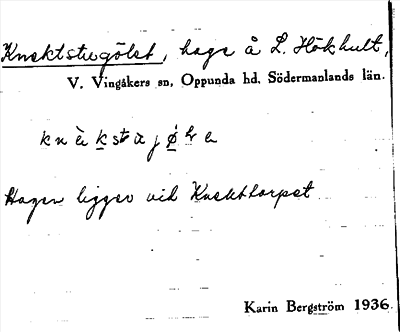 Knektstugölet, hage å L. Hökhult,
V. Vingåkers sn, Oppunda hd. Södermanlands län.
Hagen ligger vid Knekttorpet
Karin Bergström 1936.